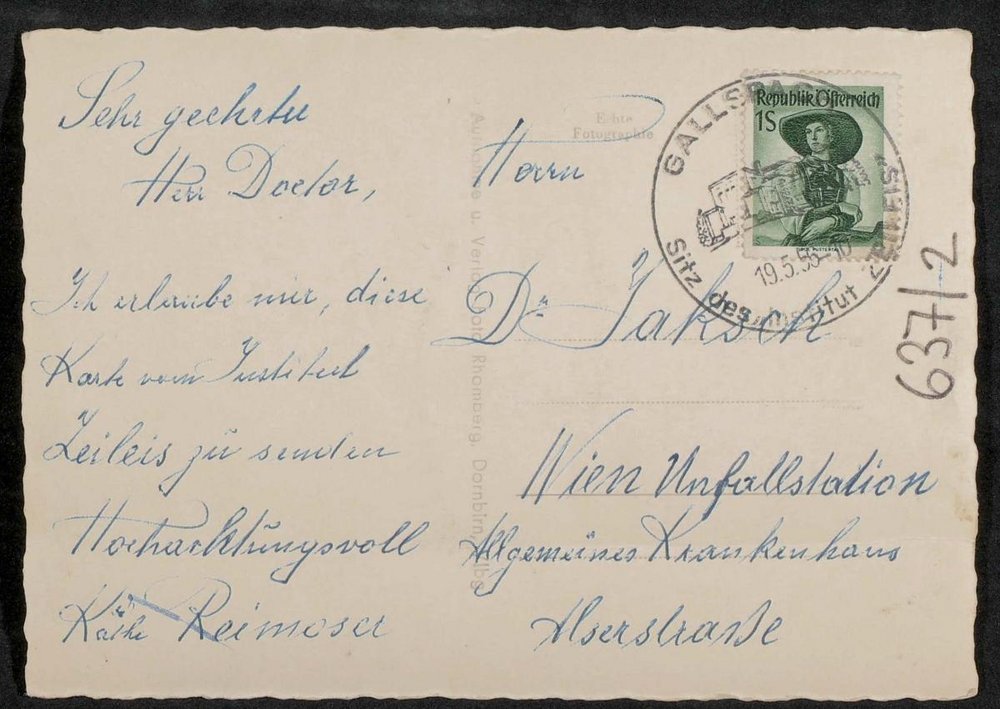 Sehr geehrter
Herr Doctor,
Ich erlaube mir, diese
Karte vom Institut
Zeileis zu senden
Hochachtungsvoll
Käthe Reimoser
Echte
Fotographie
Aufnahme u. Verlag Foto Rhomberg, Dornbirn, Vlbg.
Republik Österreich
1S
GALLSPACH
Sitz des Institut ZEILEIS
19.5.56-10
Herrn
Dr Jaksch
Wien Unfallstation
Allgemeines Krankenhaus
Alserstraße
637/2